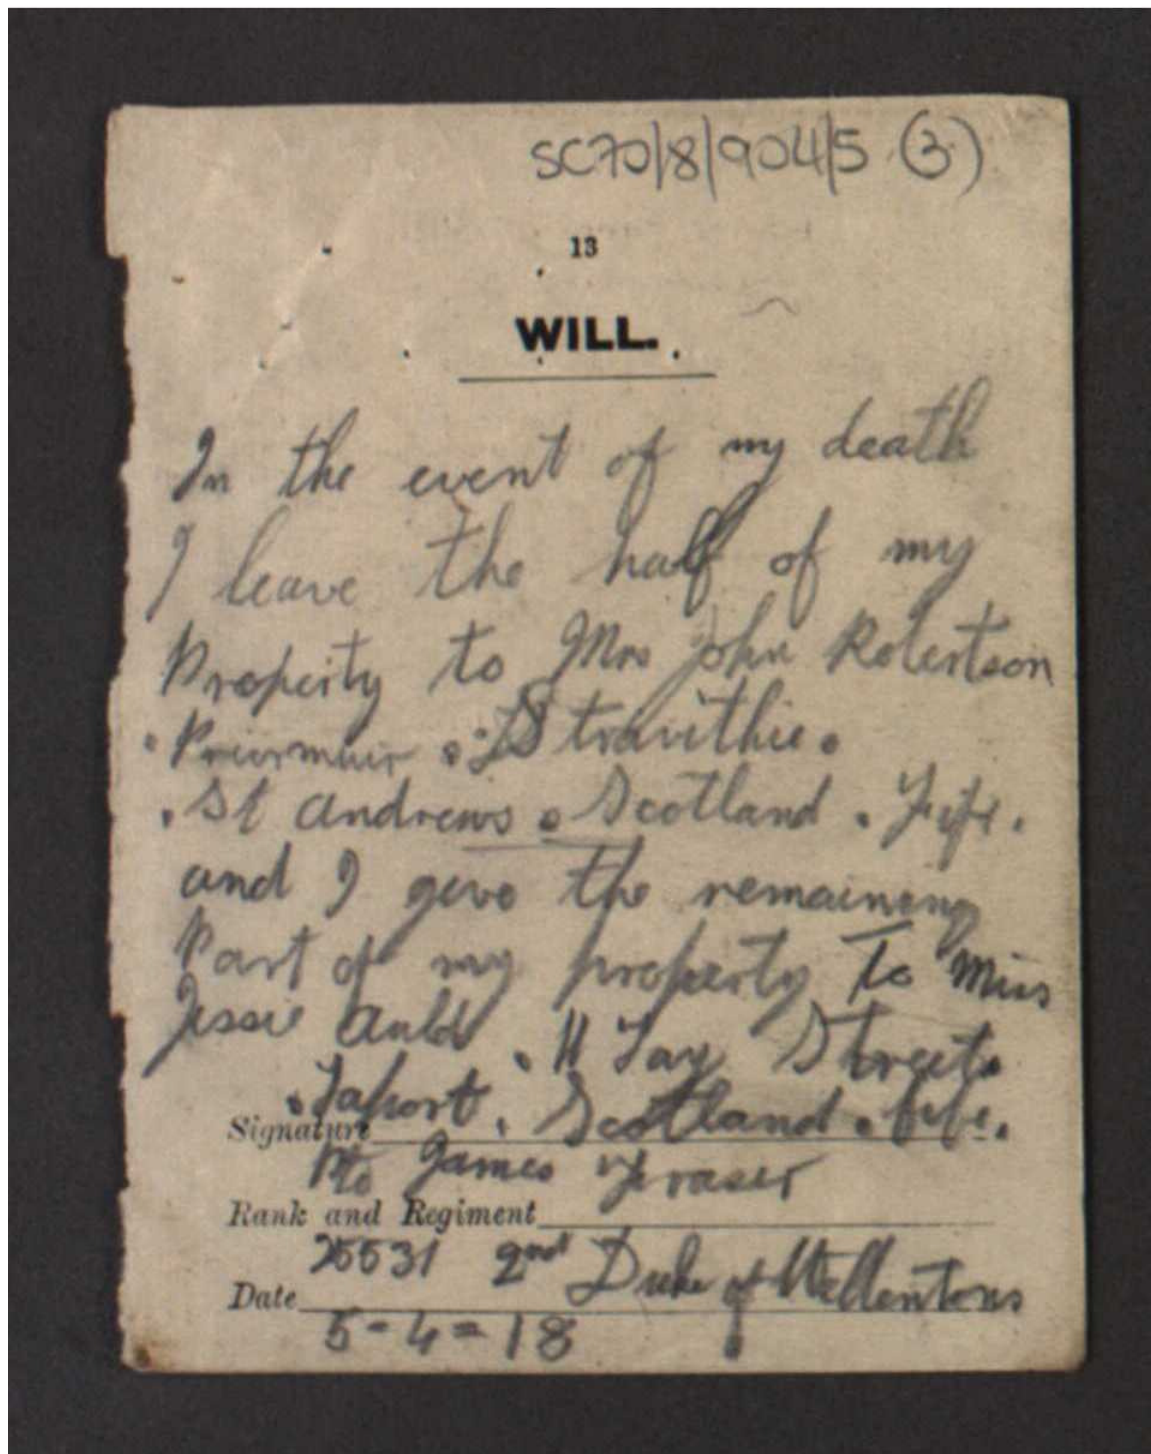 SC70/8/904/5 (3)
13
WILL.
In the event of my death
I leave the half of my
Property to Mrs John Robertson
. Priormuir . Stravithie .
. St Andrews . Scotland . Fife .
and I give the remaining
Part of my property To Miss
Jessie Auld . 11 Tay Street .
. Taport . Scotland . fife .
Signature
Pte James Fraser
Rank and Regiment
25531 2nd Duke of Wellentons
Date
5-4=18